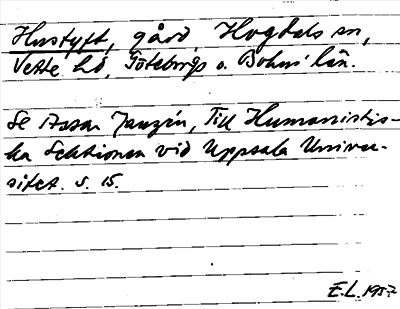 Hustyft, gård Hogdals sn,
Vette hd, Göteborgs o. Bohus' län.
Se Assar Janzén, Till Humanistis-
ka Sektionen vid Uppsala Univer-
sitet. s. 15.
E.L. 1957